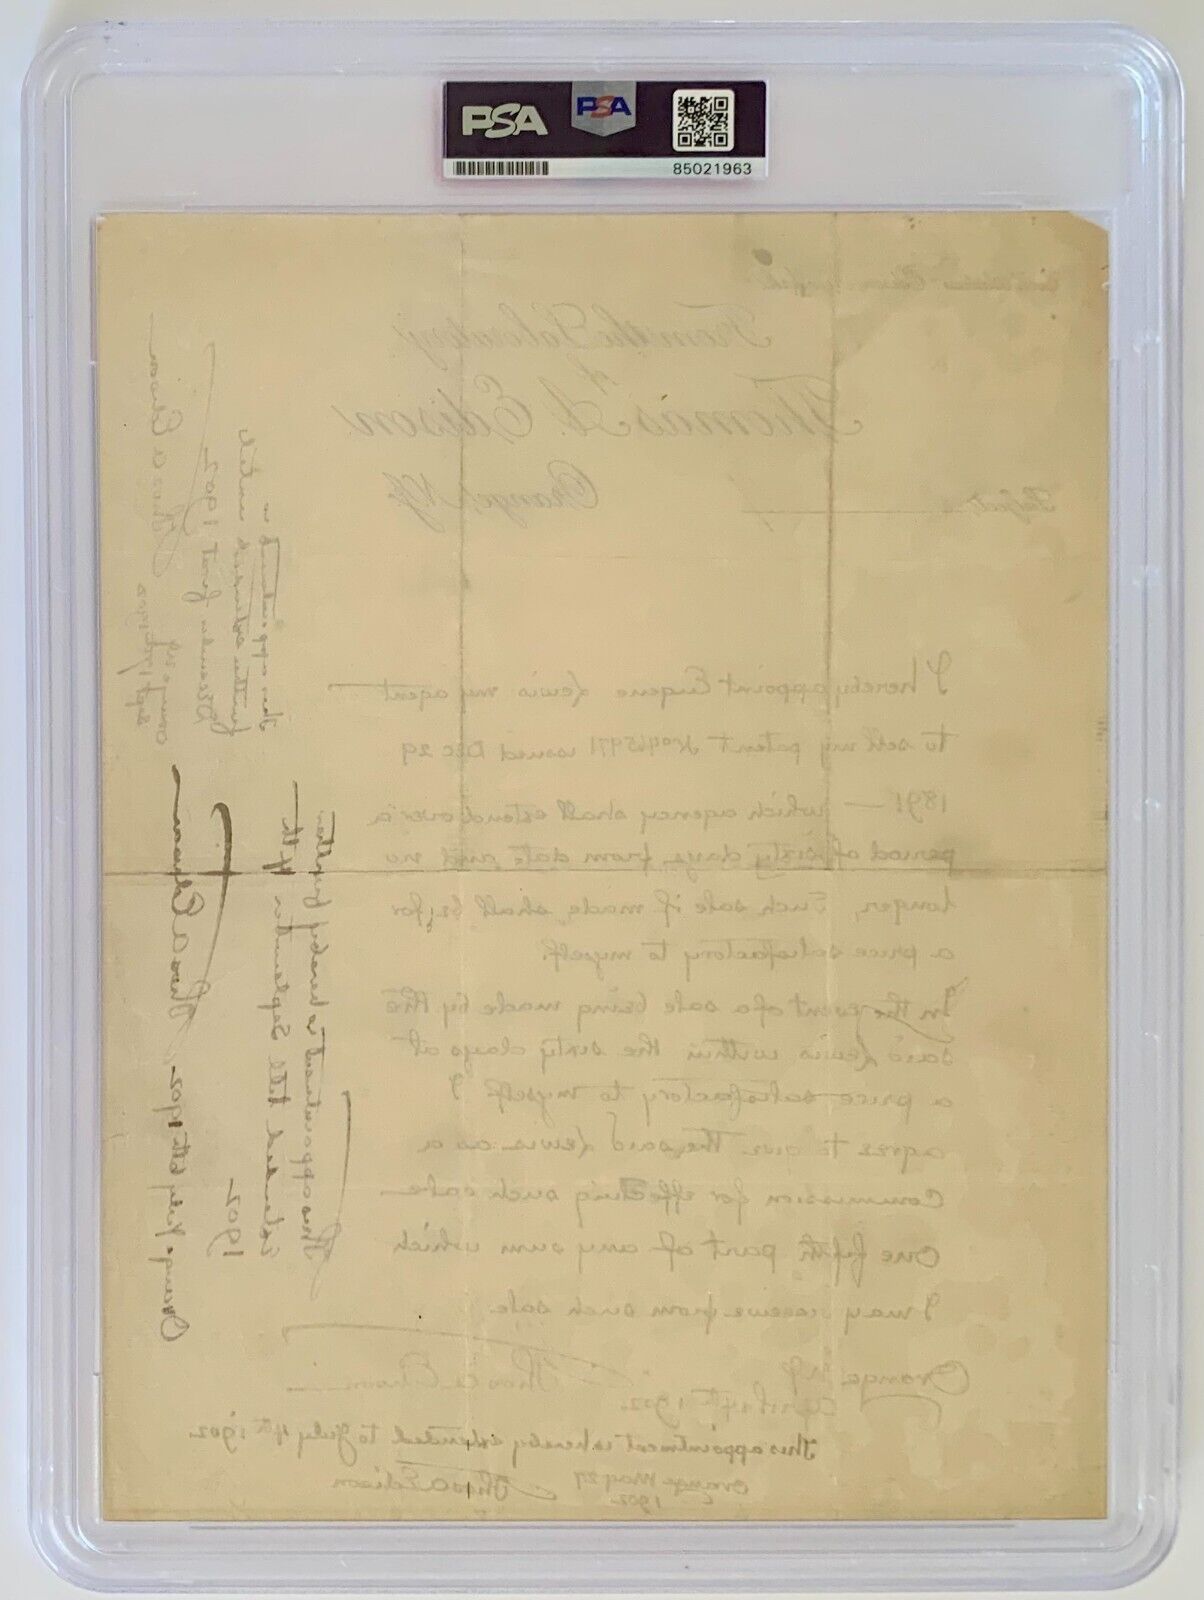 PSA
PSA
85021963
From the Laboratory
of
Thomas A. Edison
Orange, N.J.
Subject
I hereby appoint Eugene Lewis my agent
to sell my patent No 465971 issued Dec 29
1891 — which agency shall extend over a
period of sixty days from date and no
longer, Such sale if made shall be for
a price satisfactory to myself.
In the event of a sale being made by the
said Lewis within the sixty days at
a price satisfactory to myself I
agree to give the said Lewis as a
Commission for effecting such sale
one fifth part of any sum which
I may receive from such sale.
Orange NJ
April 14th 1902.
Thos A Edison
This appointment is hereby extended to July 4th 1902.
Orange May 29
1902
Thos A Edison
This appointment is hereby further
Extended till September 4th
1902
Orange July 8th 1902 Thos A Edison
this app
further extended until
December first 1902
Thos A Edison